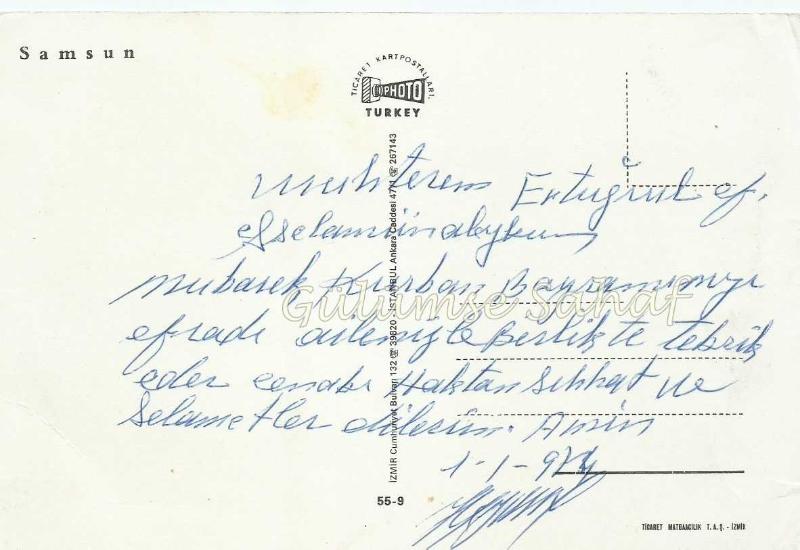 Samsun
TİCARET KARTPOSTALLARI.
PHOTO
TURKEY
Muhterem Ertuğrul ef.
Esselamünaleykum
mübarek Kurban Bayramınızı
efradı ailemizle Birlikte tebrik
eder cenabı Haktan sıhhat ve
Selametler dilerim. Amin
1-1-974
Gülümse Sahaf
İZMİR Cumhuriyet Bulvarı 132 ☏ 39820 - İSTANBUL Ankara Caddesi 47/1 ☏ 267143
55-9
TİCARET MATBAACILIK T.A.Ş. - İZMİR